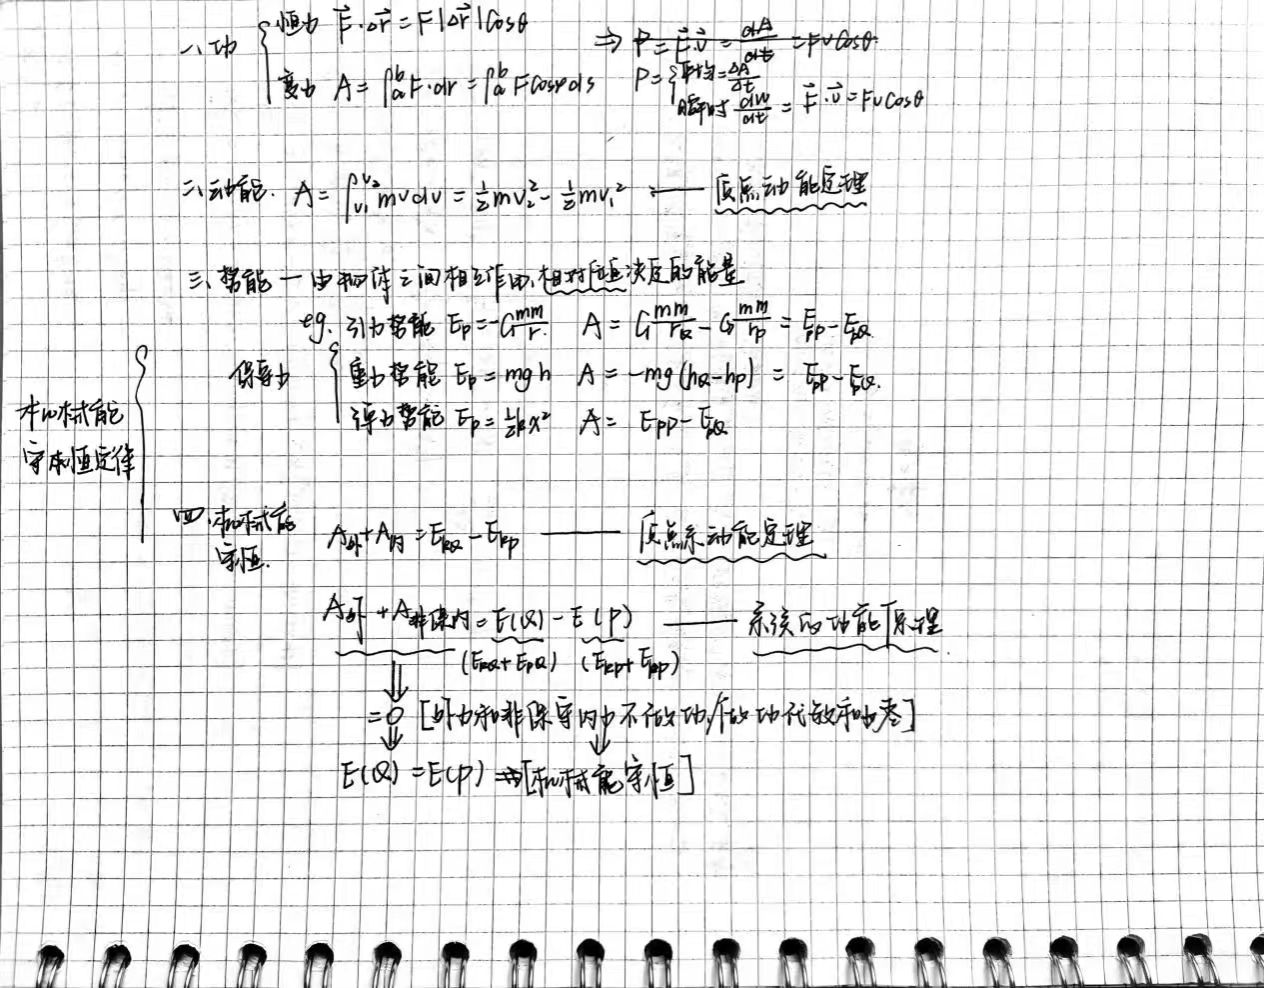 一、功 { 恒力 F⃗·Δr⃗ = F|Δr⃗|Cosθ
变力 A = ∫ₐᵇ F·dr = ∫ₐᵇ FCosθds
⇒ P = F⃗·v⃗ = dA/dt = FvCosθ.
P = { 平均 = ΔA/Δt
瞬时 dW/dt = F⃗·v⃗ = FvCosθ
二、动能. A = ∫ᵥ₁ᵛ² mvdv = ½mv₂² - ½mv₁² —— 质点动能定理
三、势能 — 由物体之间相互作用、相对位置决定的能量
eg. 引力势能 Ep = -G mm/r. A = G mm/rQ - G mm/rp = EpP - EpQ.
保守力 { 重力势能 Ep = mgh A = -mg(hQ-hp) = EpP - EpQ.
弹力势能 Ep = ½kx² A = EpP - EpQ
机械能
守恒定律
四、机械能
守恒.
A外+A内 = EkQ - Ekp —— 质点系动能定理
A外 + A非保内 = E(Q) - E(P) —— 系统的功能原理
(EkQ+EpQ) (Ekp+Epp)
⇓
=0 [外力和非保守内力不做功/做功代数和为零]
⇓ ↓
E(Q) = E(P) ⇒ [机械能守恒]